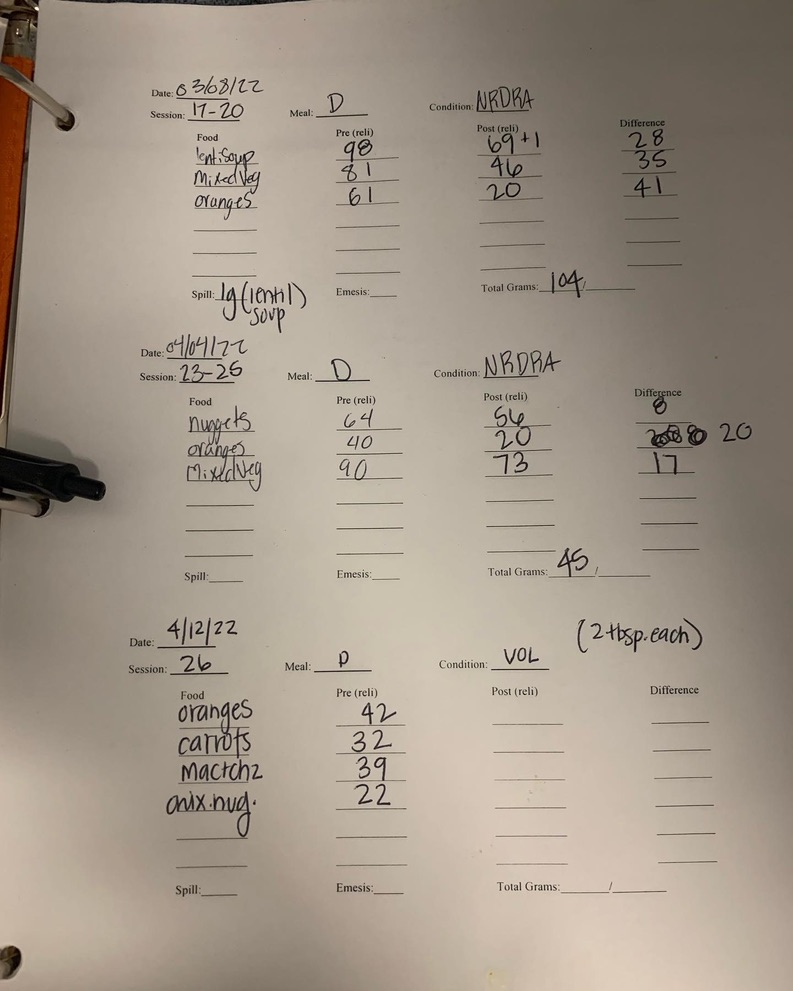 Date: 03/08/22
Session: 17-20 Meal: D Condition: NRDRA
Food Pre (reli) Post (reli) Difference
lent.Soup 98 69+1 28
MixedVeg 81 46 35
oranges 61 20 41
Spill: 1g (lentil soup Emesis: Total Grams: 104/
Date: 04/04/22
Session: 23-25 Meal: D Condition: NRDRA
Food Pre (reli) Post (reli) Difference
nuggets 64 56 8
oranges 40 20 20
MixedVeg 90 73 17
Spill: Emesis: Total Grams: 45 /
Date: 4/12/22 (2 tbsp. each)
Session: 26 Meal: D Condition: VOL
Food Pre (reli) Post (reli) Difference
oranges 42
carrots 32
Mactchz 39
chix.nug. 22
Spill: Emesis: Total Grams: /